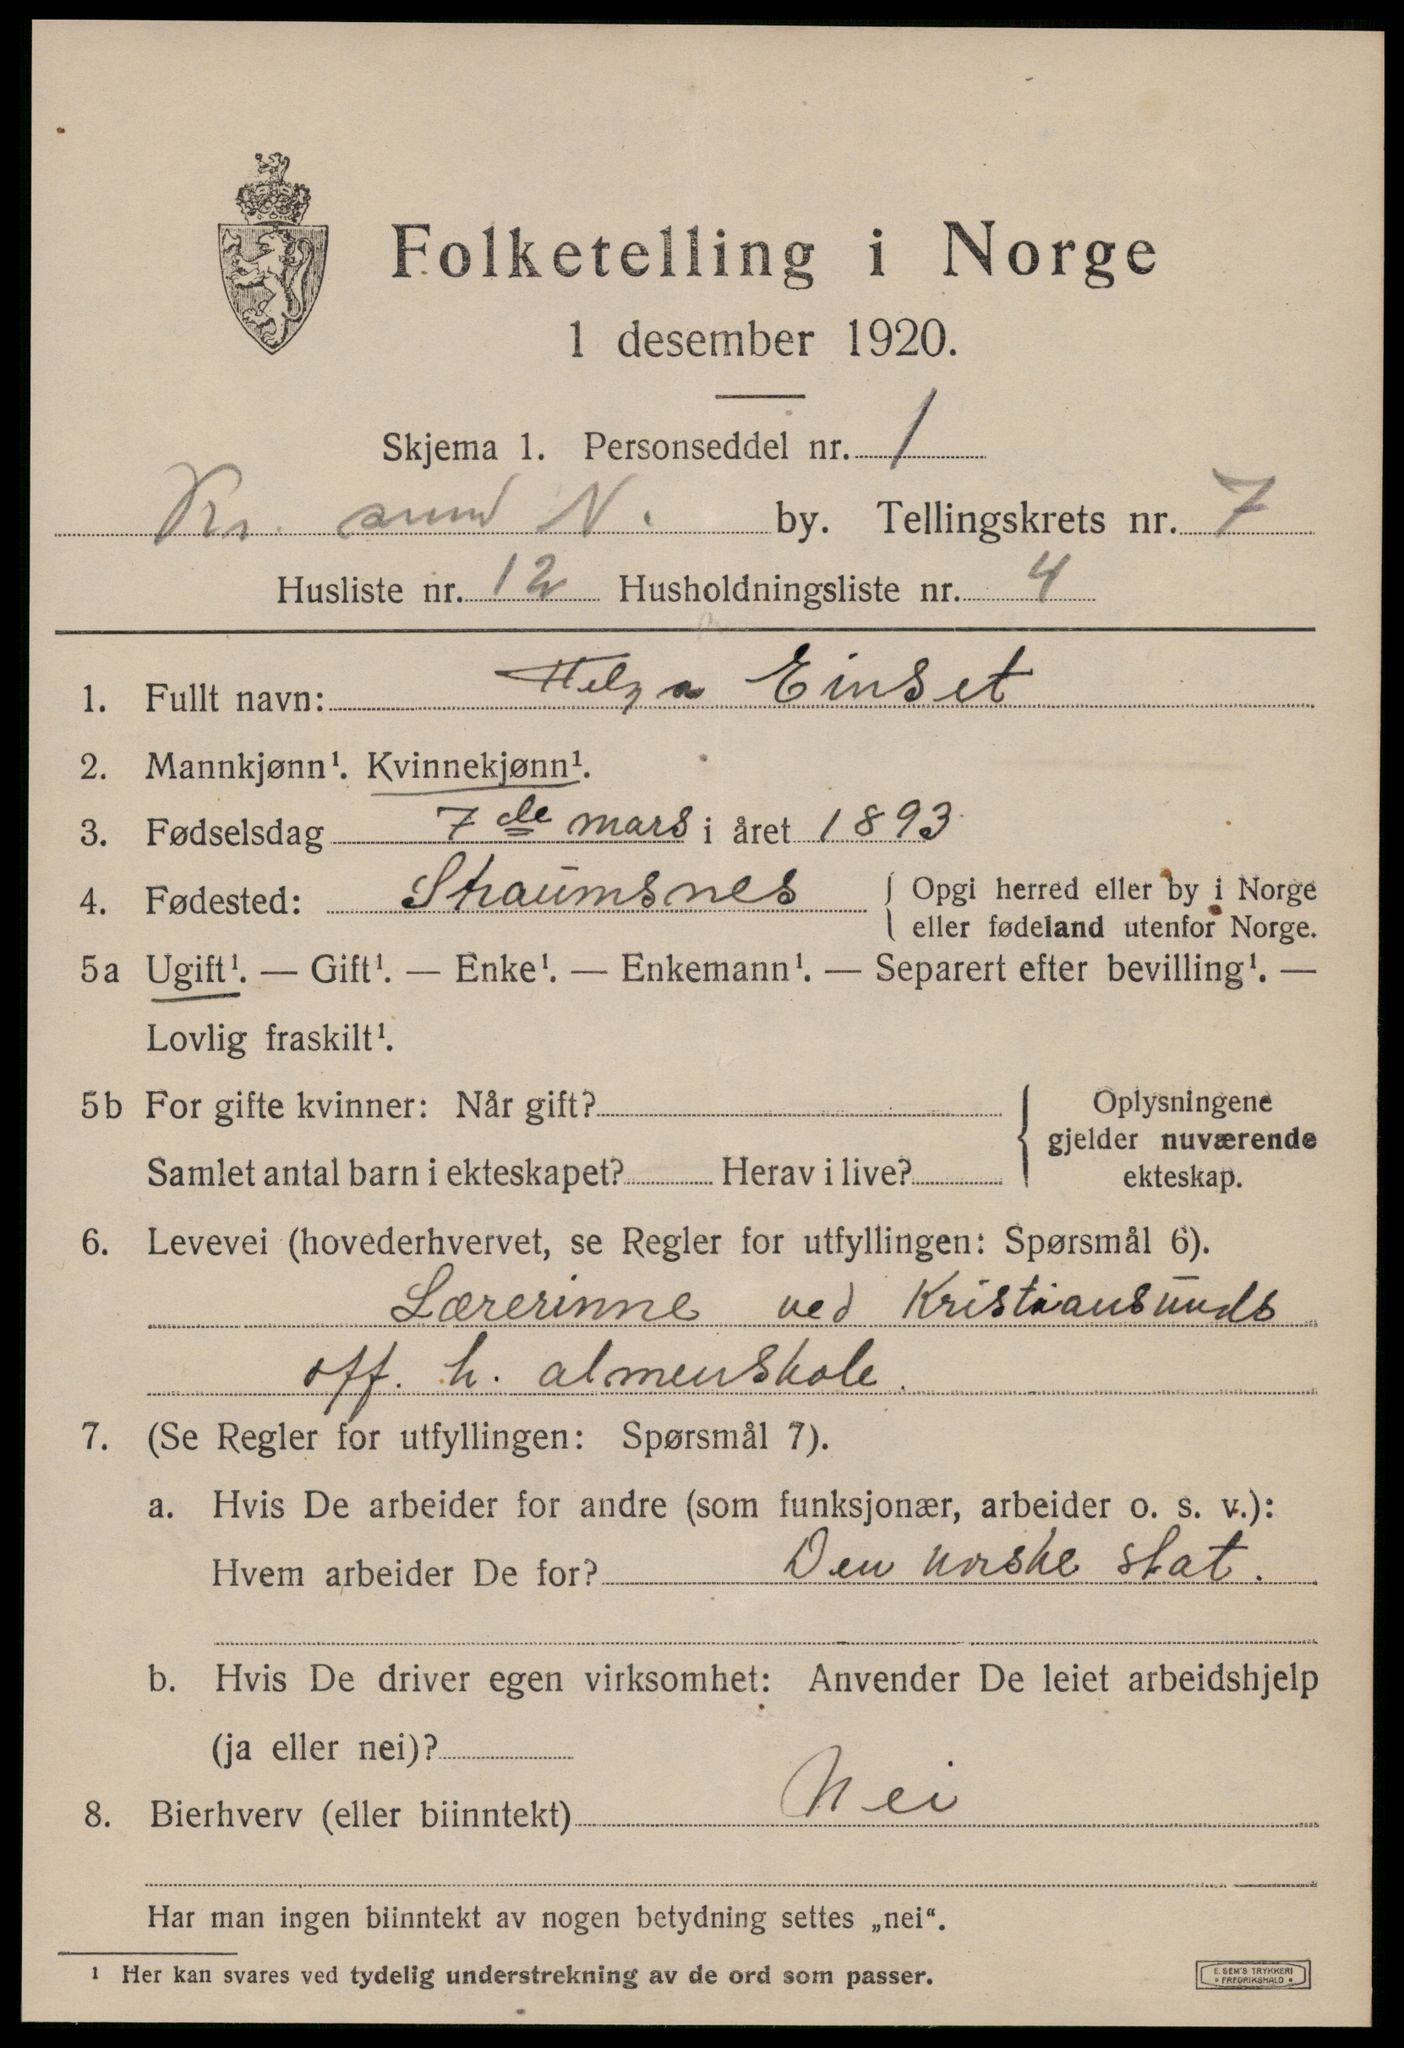 Folketelling i Norge
1 desember 1920.
Skjema 1. Personseddel nr. 1
Kr. sund N. by. Tellingskrets nr. 7
Husliste nr. 12 Husholdningsliste nr. 4
1. Fullt navn: Helga Einset
2. Mannkjønn¹. Kvinnekjønn¹.
3. Fødselsdag 7de mars i året 1893
4. Fødested: Straumsnes { Opgi herred eller by i Norge
eller fødeland utenfor Norge.
5a Ugift¹. — Gift¹. — Enke¹. — Enkemann¹. — Separert efter bevilling¹. —
Lovlig fraskilt¹.
5b For gifte kvinner: Når gift?
Samlet antal barn i ekteskapet? Herav i live?
{ Oplysningene
gjelder nuværende
ekteskap.
6. Levevei (hovederhvervet, se Regler for utfyllingen: Spørsmål 6).
Lærerinne ved Kristiansunds
off. h. almenskole.
7. (Se Regler for utfyllingen: Spørsmål 7).
a. Hvis De arbeider for andre (som funksjonær, arbeider o. s. v.):
Hvem arbeider De for? Den norske stat.
b. Hvis De driver egen virksomhet: Anvender De leiet arbeidshjelp
(ja eller nei)?
8. Bierhverv (eller biinntekt) Nei
Har man ingen biinntekt av nogen betydning settes „nei“.
¹ Her kan svares ved tydelig understrekning av de ord som passer.
E. SEM'S TRYKKERI
• FREDRIKSHALD •